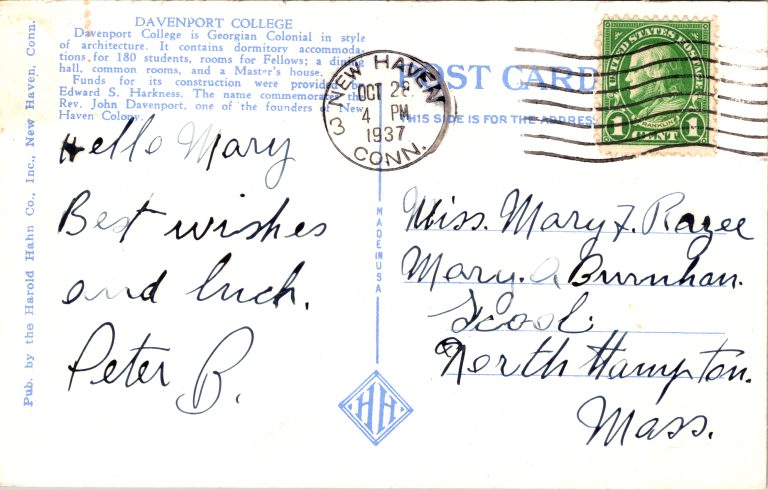 DAVENPORT COLLEGE
Davenport College is Georgian Colonial in style
of architecture. It contains dormitory accommoda-
tions, for 180 students, rooms for Fellows; a dining
hall, common rooms, and a Master's house.
Funds for its construction were provided by
Edward S. Harkness. The name commemorates the
Rev. John Davenport, one of the founders of New
Haven Colony.
Pub. by the Harold Hahn Co., Inc., New Haven, Conn.
POST CARD
THIS SIDE IS FOR THE ADDRESS
NEW HAVEN
OCT 28
4 PM
1937
3
CONN.
UNITED STATES POSTAGE
FRANKLIN
1 CENT 1
Hello Mary
Best wishes
and luck.
Peter B.
MADE IN USA
HH
Miss. Mary F. Razee
Mary. A Burnhan.
Scool.
North Hampton.
Mass.